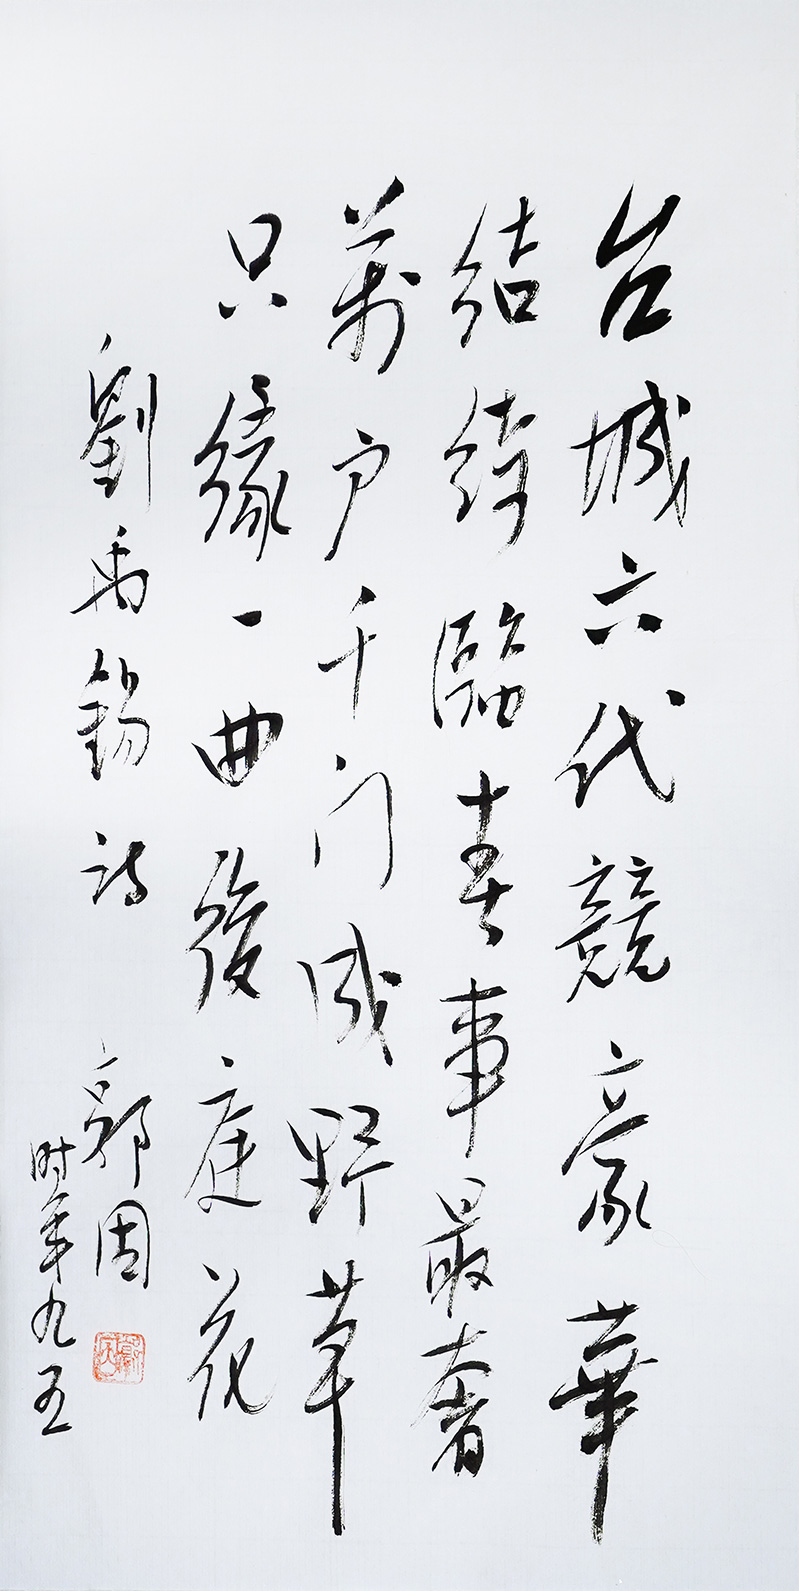 台城六代競豪華
结绮臨春事最奢
萬户千门成野草
只缘一曲後庭花
劉禹錫诗
郭固
时年九五